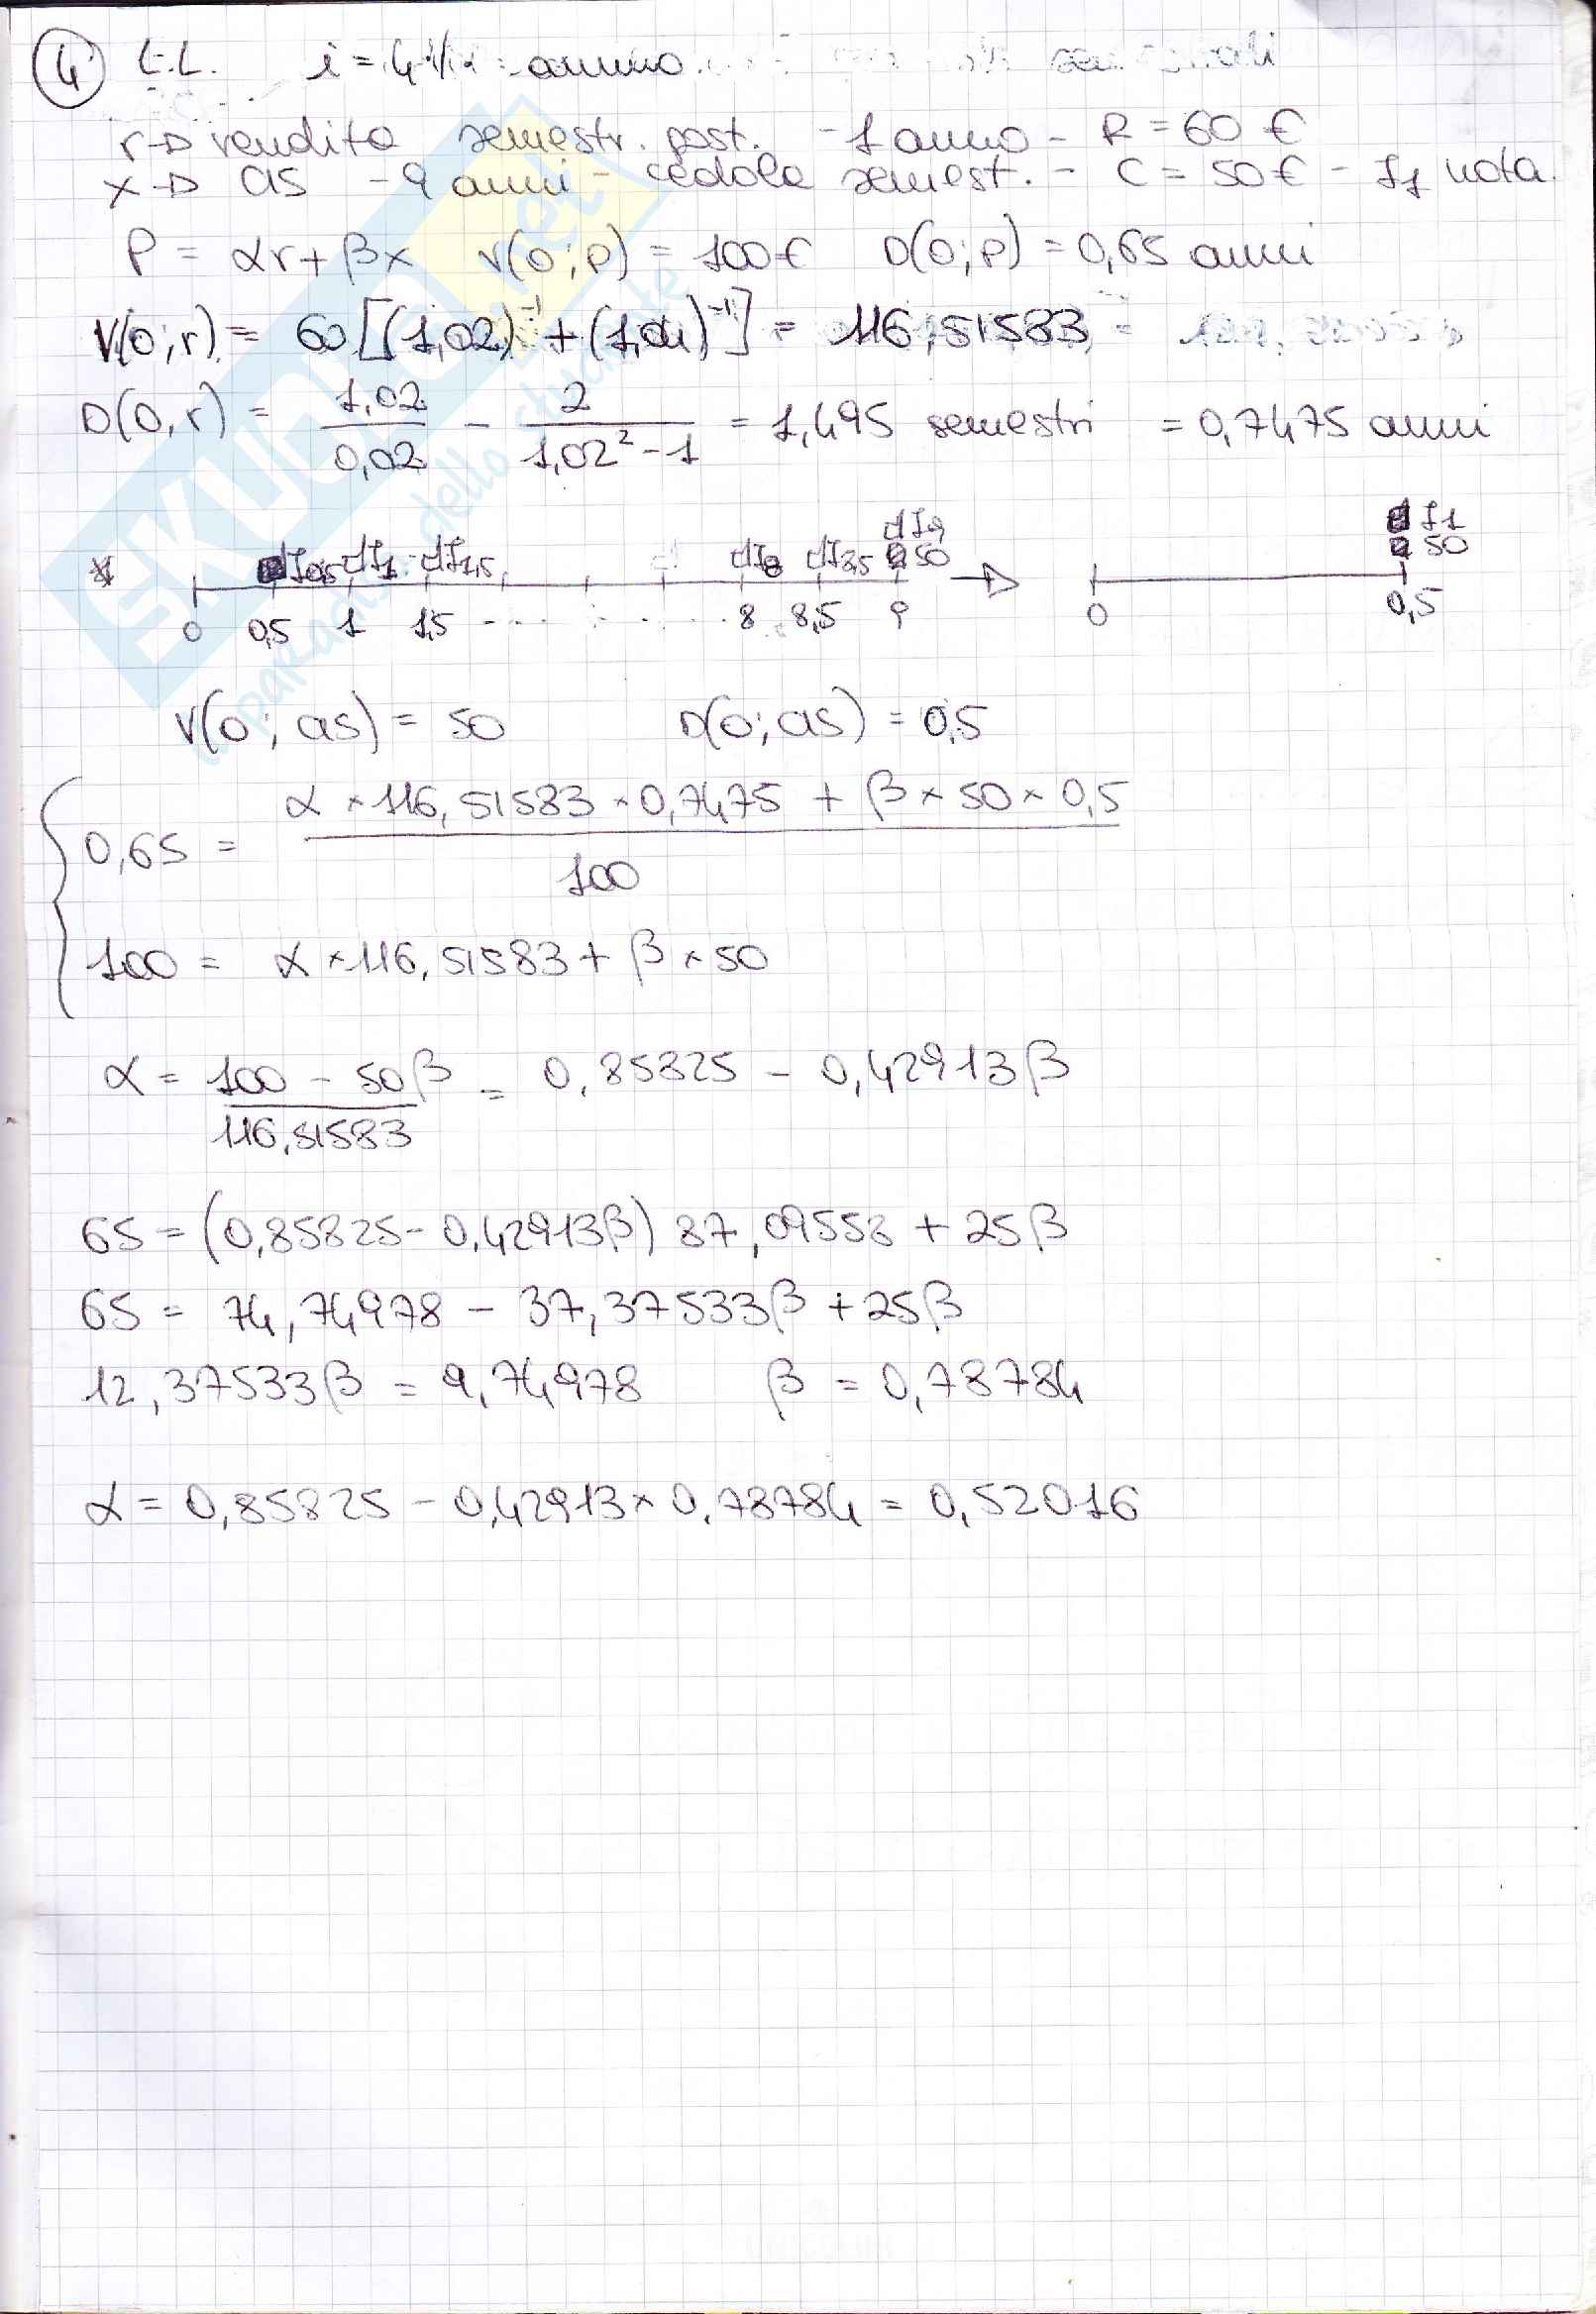 4 L.L. i = 4% annuo
r → rendita semestr. post. - 1 anno - R = 60 €
x → as - 9 anni - cedole semest. - C = 50 € - I1 nota.
P = αr + βx V(0; p) = 100 € D(0; p) = 0,65 anni
V(0; r) = 60 [(1,02)⁻¹ + (1,04)⁻¹] = 116,51583 =
D(0, r) = 1,02/0,02 - 2/(1,02² - 1) = 1,495 semestri = 0,7475 anni
I9 I1
I0,5 I1 I1,5 I8 I8,5 50 50
0 0,5 1 1,5 - - - - - - 8 8,5 9 0 0,5
V(0; as) = 50 D(0; as) = 0,5
0,65 = (α × 116,51583 × 0,7475 + β × 50 × 0,5)/100
100 = α × 116,51583 + β × 50
α = (100 - 50β)/116,51583 = 0,85825 - 0,42913β
65 = (0,85825 - 0,42913β) 87,09558 + 25β
65 = 74,74978 - 37,37533β + 25β
12,37533β = 9,74978 β = 0,78784
α = 0,85825 - 0,42913 × 0,78784 = 0,52016